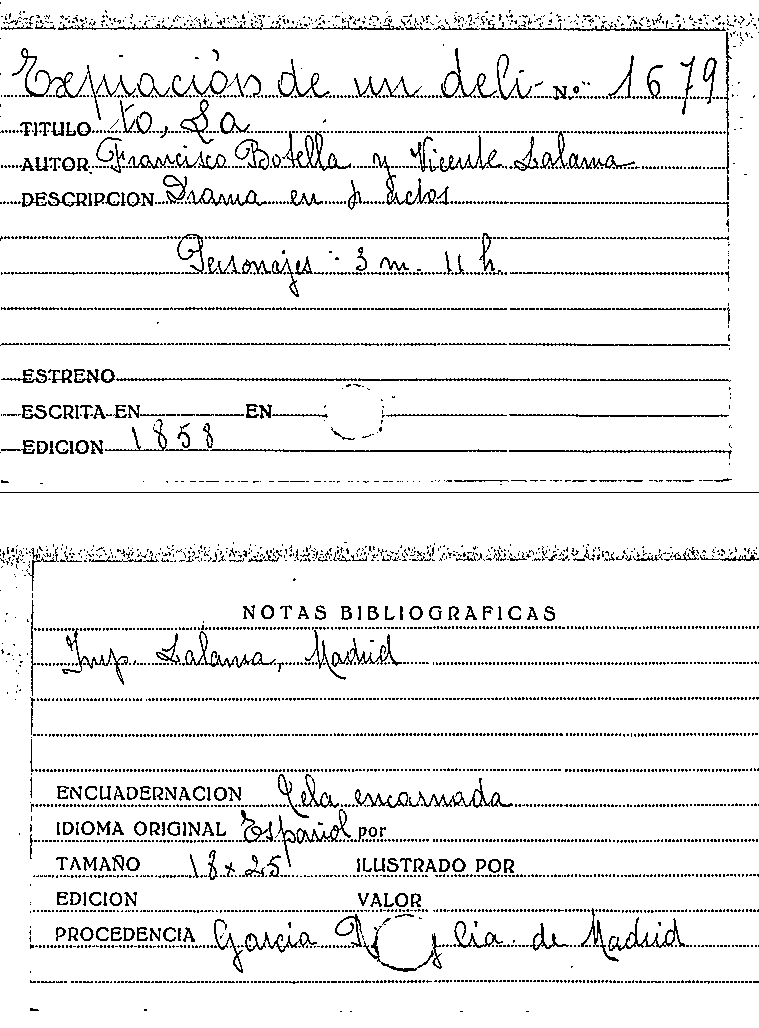 Expiación de un deli- N.º 1679
TITULO to, La
AUTOR Francisco Botella y Vicente Lalama
DESCRIPCION Drama en Actos
Personajes: 3 m. 11 h.
ESTRENO
ESCRITA EN EN
EDICION 1858
NOTAS BIBLIOGRAFICAS
Imp. Lalama, Madrid
ENCUADERNACION Tela encarnada
IDIOMA ORIGINAL Español por
TAMAÑO 18x25 ILUSTRADO POR
EDICION VALOR
PROCEDENCIA García y Cia. de Madrid